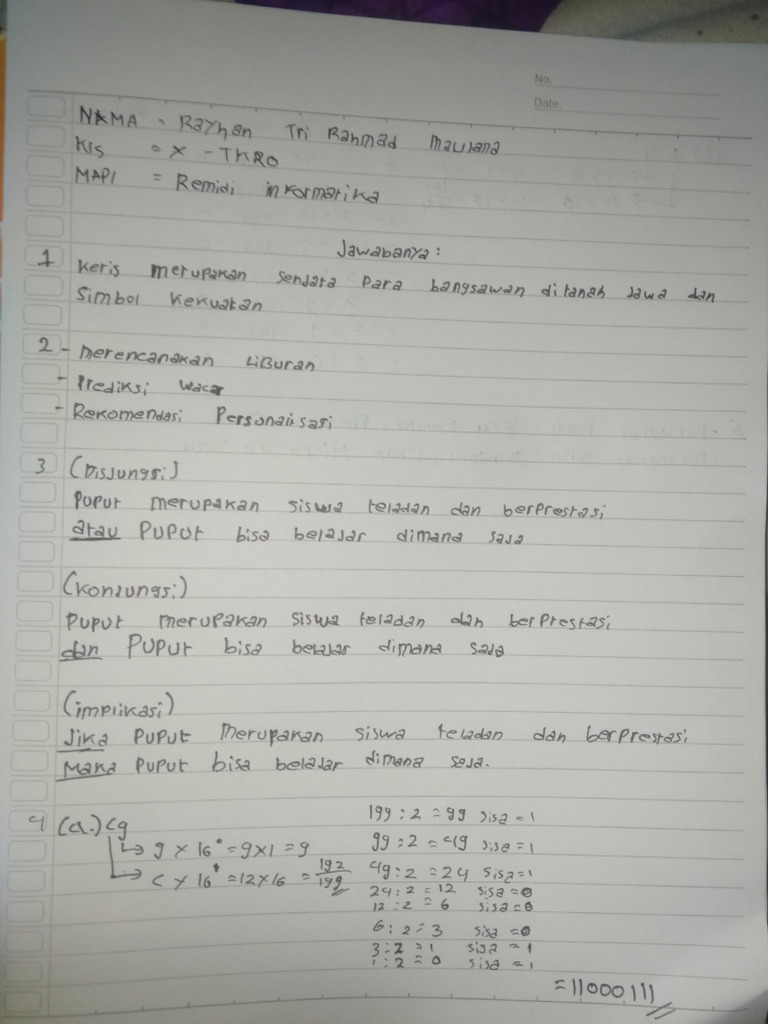 No.
Date.
NAMA = Rayhan Tri Rahmad Maulana
Kls = X - TKRO
MAPI = Remidi informatika
Jawabanya :
1 Keris merupakan senjata para bangsawan ditanah Jawa dan
Simbol kekuatan
2 - Merencanakan LiBuran
- Prediksi
- Rekomendasi Personalisasi
3 (Disjungsi)
Puput merupakan siswa teladan dan berprestasi
atau PUPUT bisa belajar dimana saja
(Konjungsi)
Puput merupakan siswa teladan dan berprestasi
dan PUPUT bisa belajar dimana saja
(implikasi)
Jika PUPUT merupakan siswa teladan dan berprestasi
Maka PUPUT bisa belajar dimana saja.
4 (a.) C9
↳ 9 x 16° = 9 x 1 = 9
↳ C x 16¹ = 12 x 16 = 192
199
199 : 2 = 99 sisa = 1
99 : 2 = 49 sisa = 1
49 : 2 = 24 sisa = 1
24 : 2 = 12 sisa = 0
12 : 2 = 6 sisa = 0
6 : 2 = 3 sisa = 0
3 : 2 = 1 sisa = 1
1 : 2 = 0 sisa = 1
= 11000111